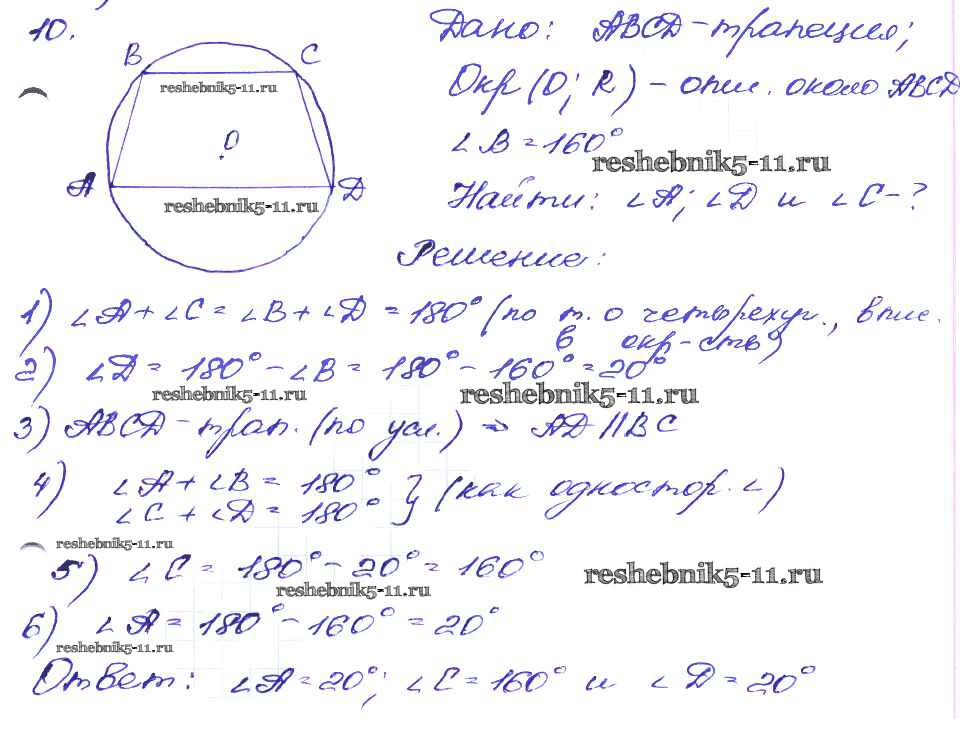 10.
Дано: ABCD - трапеция;
B C
reshebnik5-11.ru
Окр (O; R) - опис. около ABCD
O
∠B = 160°
reshebnik5-11.ru
A D
reshebnik5-11.ru
Найти: ∠A; ∠D и ∠C - ?
Решение:
1) ∠A + ∠C = ∠B + ∠D = 180° (по т. о четырехуг., впис.
в окр-сть)
2) ∠D = 180° - ∠B = 180° - 160° = 20°
reshebnik5-11.ru reshebnik5-11.ru
3) ABCD - трап. (по усл.) ⇒ AD || BC
4) ∠A + ∠B = 180°
∠C + ∠D = 180° } (как одностор. ∠)
reshebnik5-11.ru
5) ∠C = 180° - 20° = 160°
reshebnik5-11.ru
reshebnik5-11.ru
6) ∠A = 180° - 160° = 20°
reshebnik5-11.ru
Ответ: ∠A = 20°; ∠C = 160° и ∠D = 20°